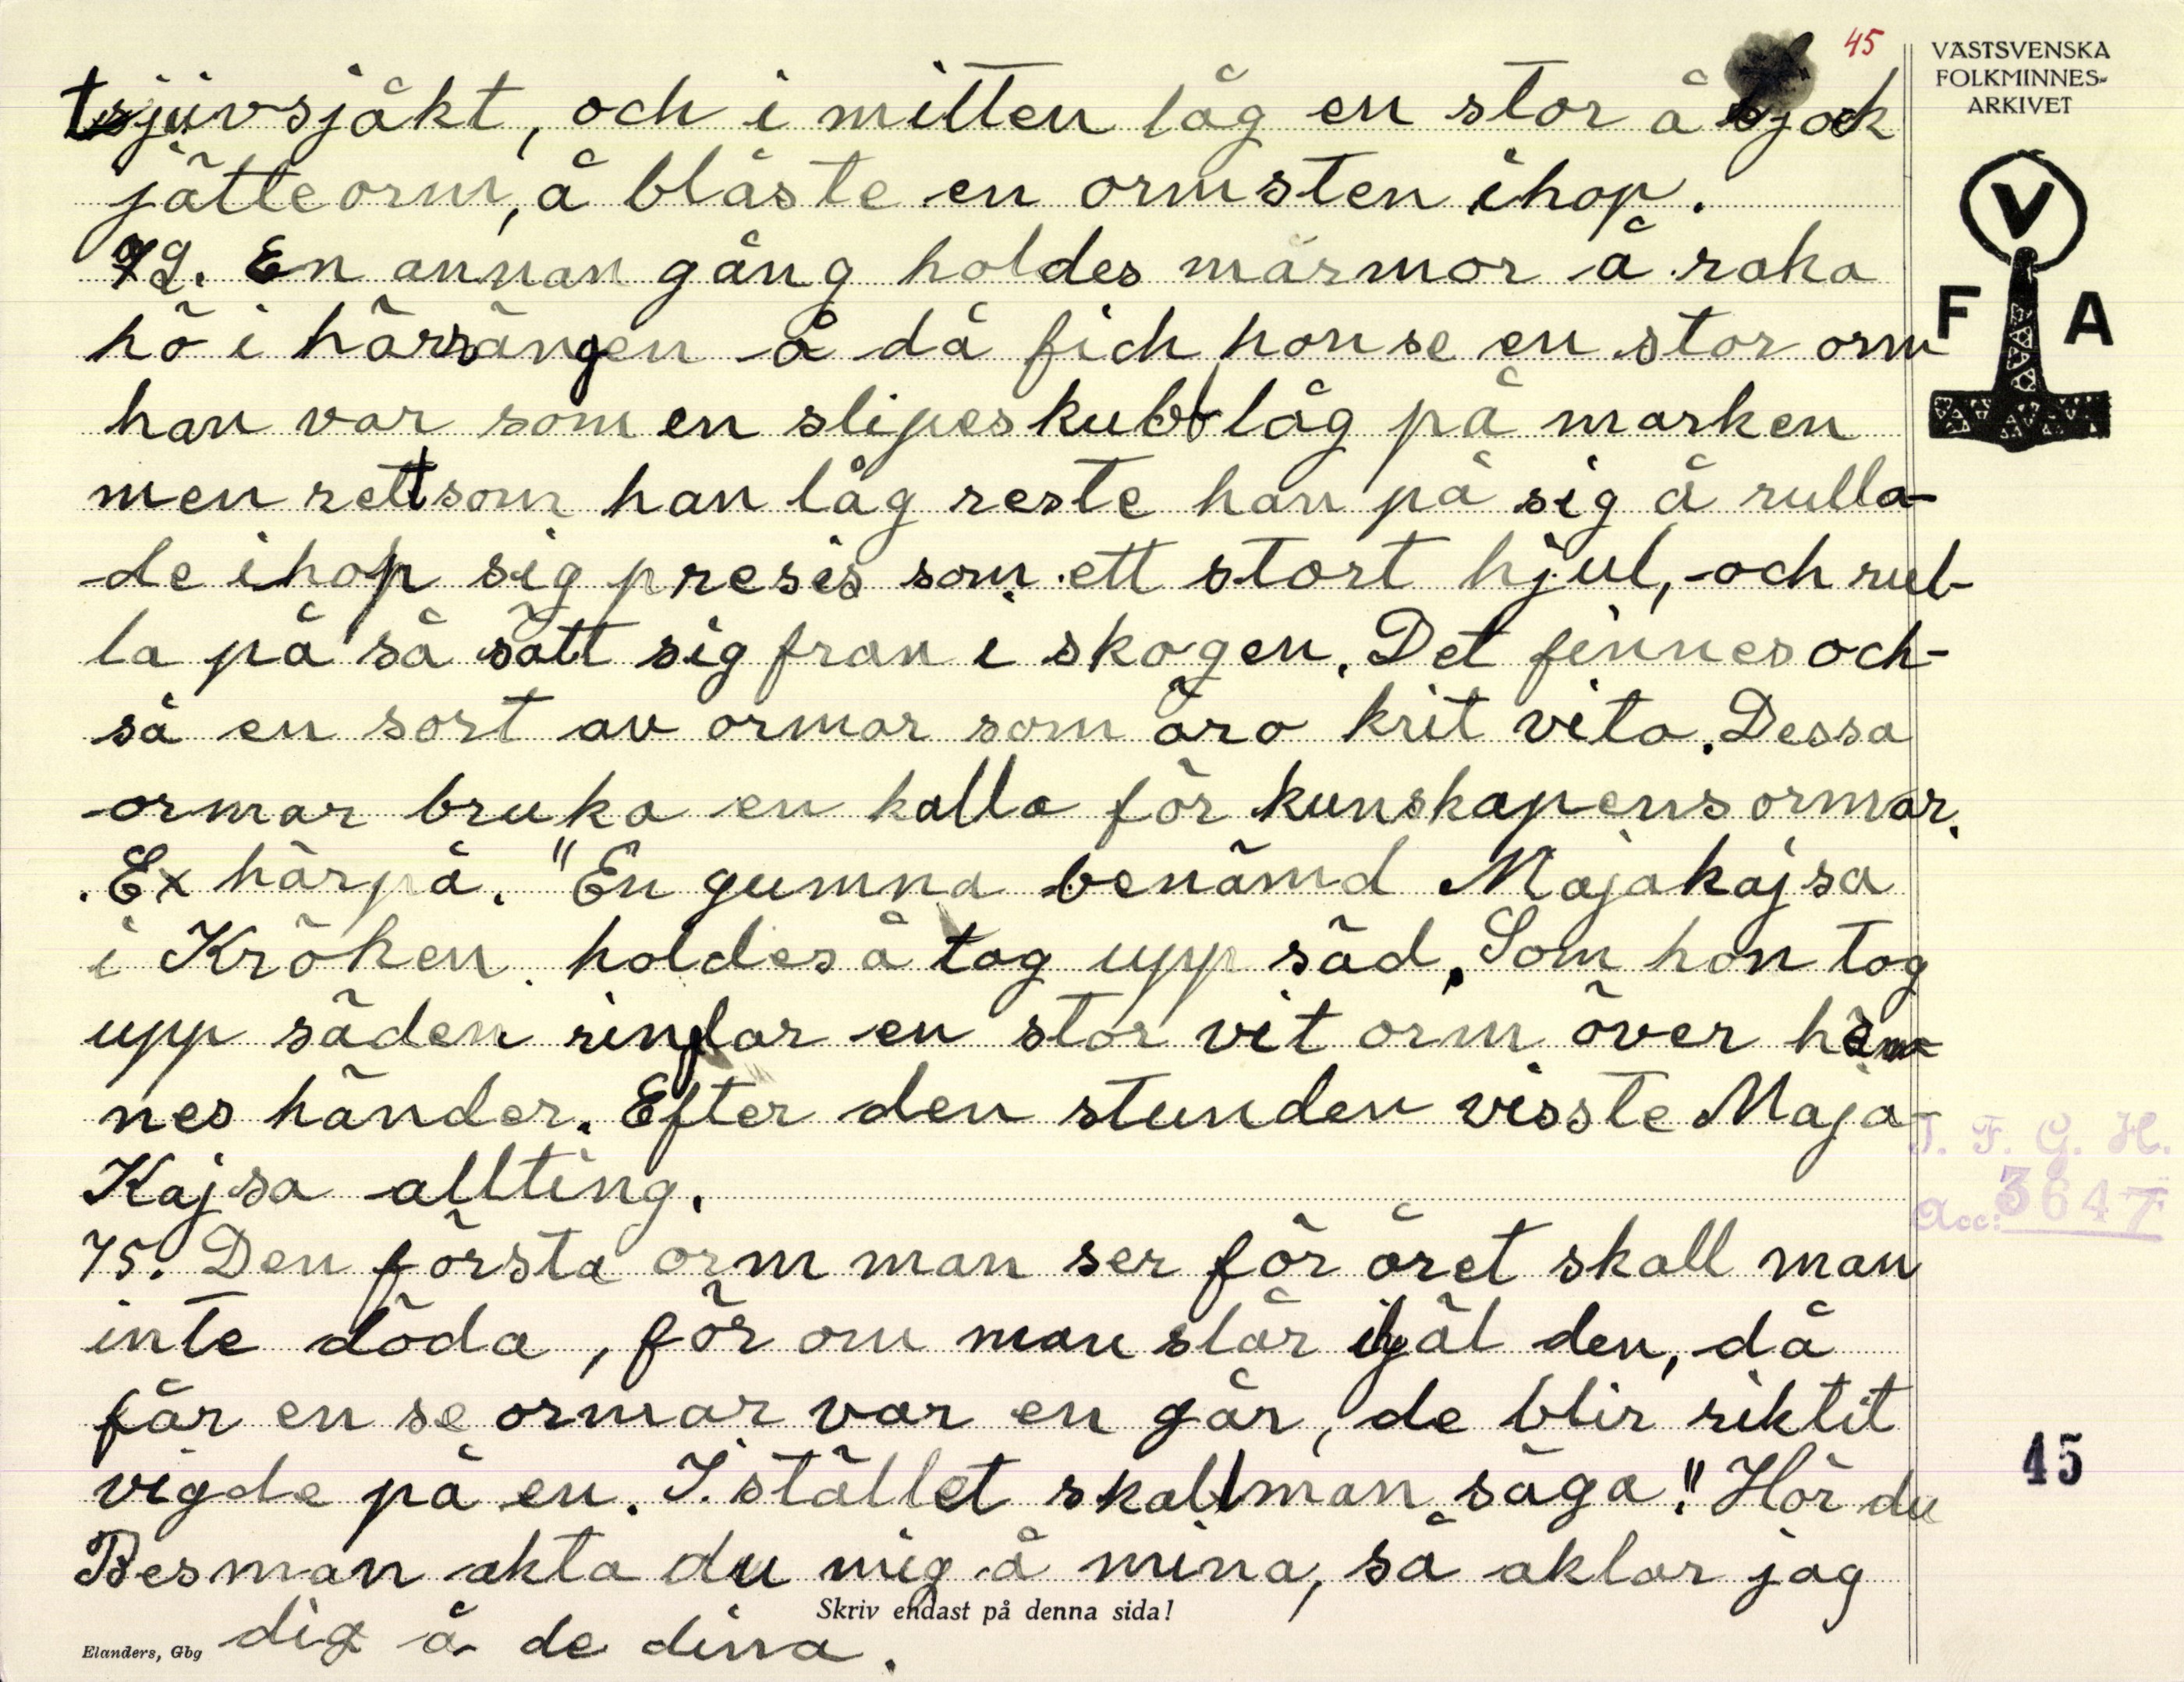 45
VÄSTSVENSKA
FOLKMINNES-
ARKIVET
V
F A
tsjuvsjåkt, och i mitten låg en stor å tjock
jätteorm, å blåste en ormsten ihop.
72. En annan gång holdes mårmor å raka
hö i hårsängen å då fich hon se en stor orm
han var som en slipeskubb låg på marken
men rettsom han låg reste han på sig å rulla-
de ihop sig presis som ett stort hjul, och rul-
la på så sätt sig fran i skogen. Det finnes och-
så en sort av ormar som äro krit vita. Dessa
ormar bruka en kalla för kunskapens ormar.
Ex härpå. "En gumma benämd Majakajsa
i Kröken holdes å tog upp säd. Som hon tog
upp säden ringlar en stor vit orm över hen-
nes händer. Efter den stunden visste Maja-
Kajsa allting.
T. F. G. H.
Acc: 3647
75. Den första orm man ser för året skall man
inte döda, för om man slår ihjäl den, då
får en se ormar var en går, de blir riktit
vigde på en. I stället skall man säga!" Hör du
Besman akta du mig å mina, så aktar jag
dig å de dina.
45
Skriv endast på denna sida!
Elanders, Gbg